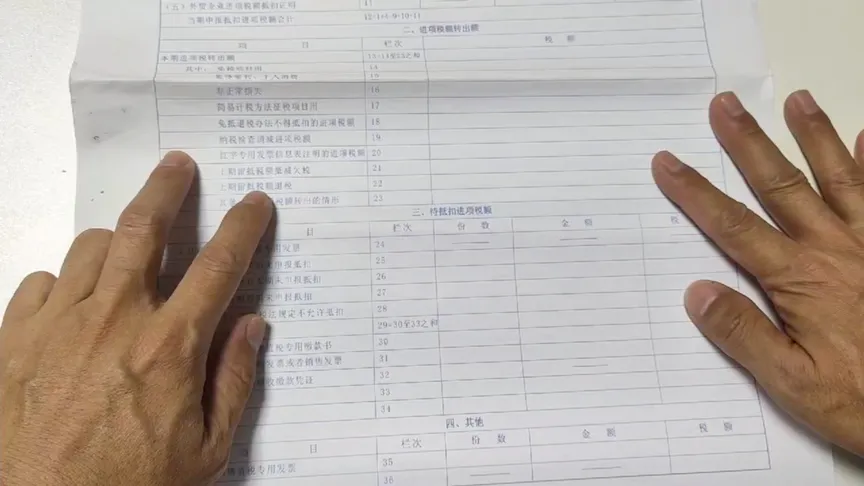 （五）外贸企业进项税额抵扣证明 11
当期申报抵扣进项税额合计 12=1+4-9+10+11
二、进项税额转出额
项 目 栏次 税 额
本期进项税转出额 13=14至23之和
其中： 14
15
非正常损失 16
简易计税方法征税项目用 17
免抵退税办法不得抵扣的进项税额 18
纳税检查调减进项税额 19
红字专用发票信息表注明的进项税额 20
上期留抵税额抵减欠税 21
上期留抵税额退税 22
税额转出的情形 23
三、待抵扣进项税额
目 栏次 份 数 金 额 税
专用发票 24
报抵扣 25
期未申报抵扣 26
期末未申报抵扣 27
规定不允许抵扣 28
29=30至33之和
税专用缴款书 30
发票或者销售发票 31
税收缴款凭证 32
33
34
四、其他
项 目 栏次 份 数 金 额 税 额
税专用发票 35
36